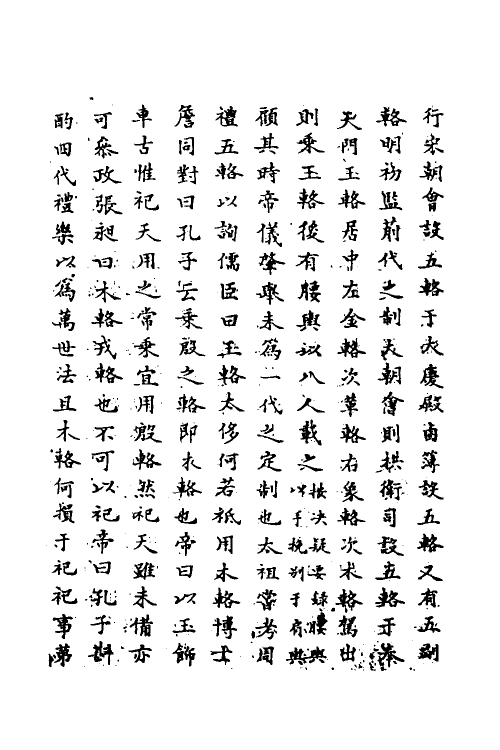 行宋朝會設五輅于大慶殿鹵簿設五輅又有五副
輅明初監前代之制大朝會則拱衛司設五輅于奉
天門玉輅居中左金輅次革輅右象輅次木輅駕出
則乘玉輅後有腰輿以八人載之按決疑要録腰輿以手挽别于肩輿
顧其時帝儀肇舉未爲一代之定制也太祖嘗考周
禮五輅以詢儒臣曰玉輅太侈何若祗用木輅博士
詹同對曰孔子云乘殷之輅即木輅也帝曰以玉飾
車古惟祀天用之常乘宜用殷輅然祀天雖未備亦
可叅政張昶曰木輅戎輅也不可以祀帝曰孔子斟
酌四代禮樂以爲萬世法且木輅何損于祀祀事第